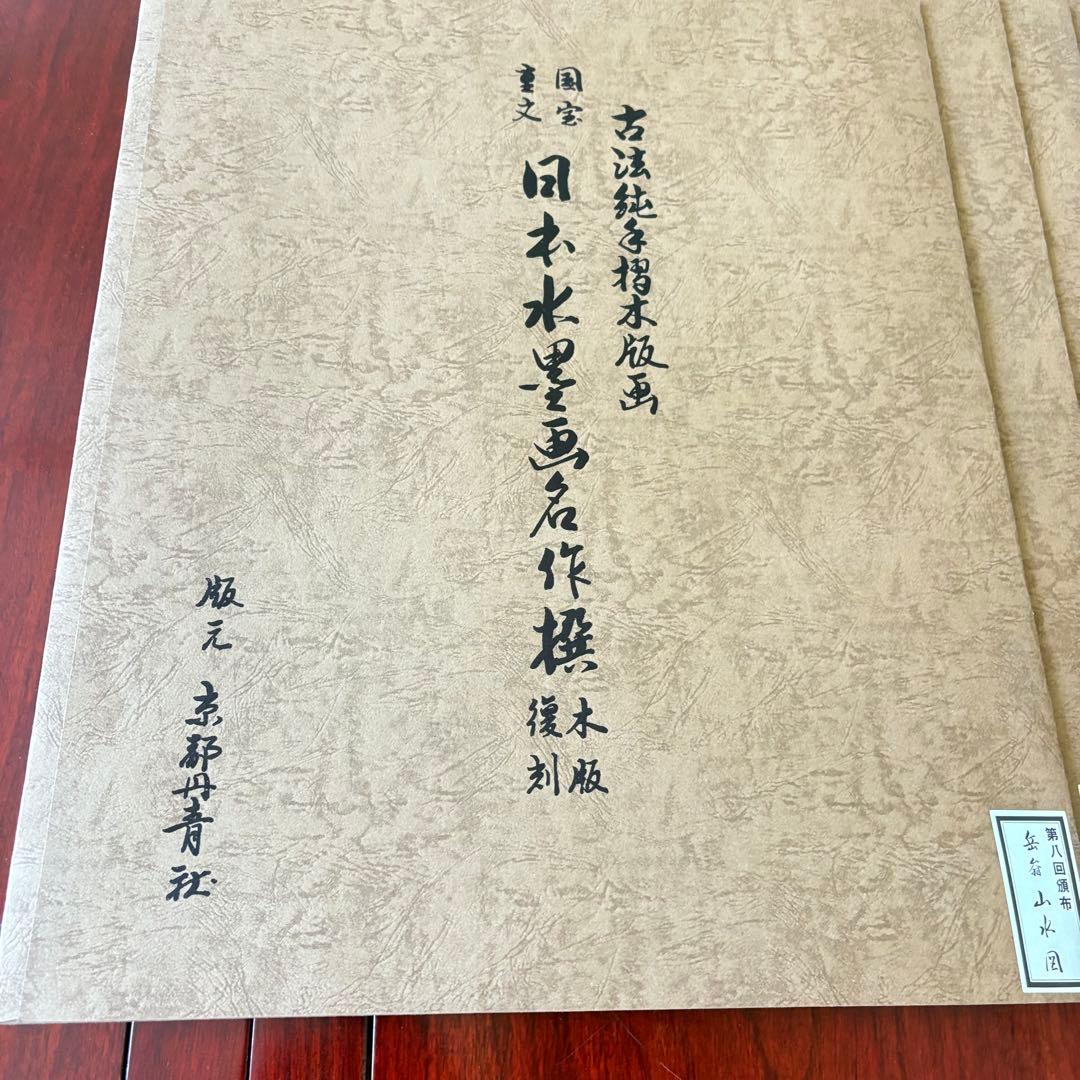 古法純手摺木版画
国宝
重文
日本水墨画名作撰
木版
復刻
版元 京都丹青社
第八回頒布
岳翁 山水図